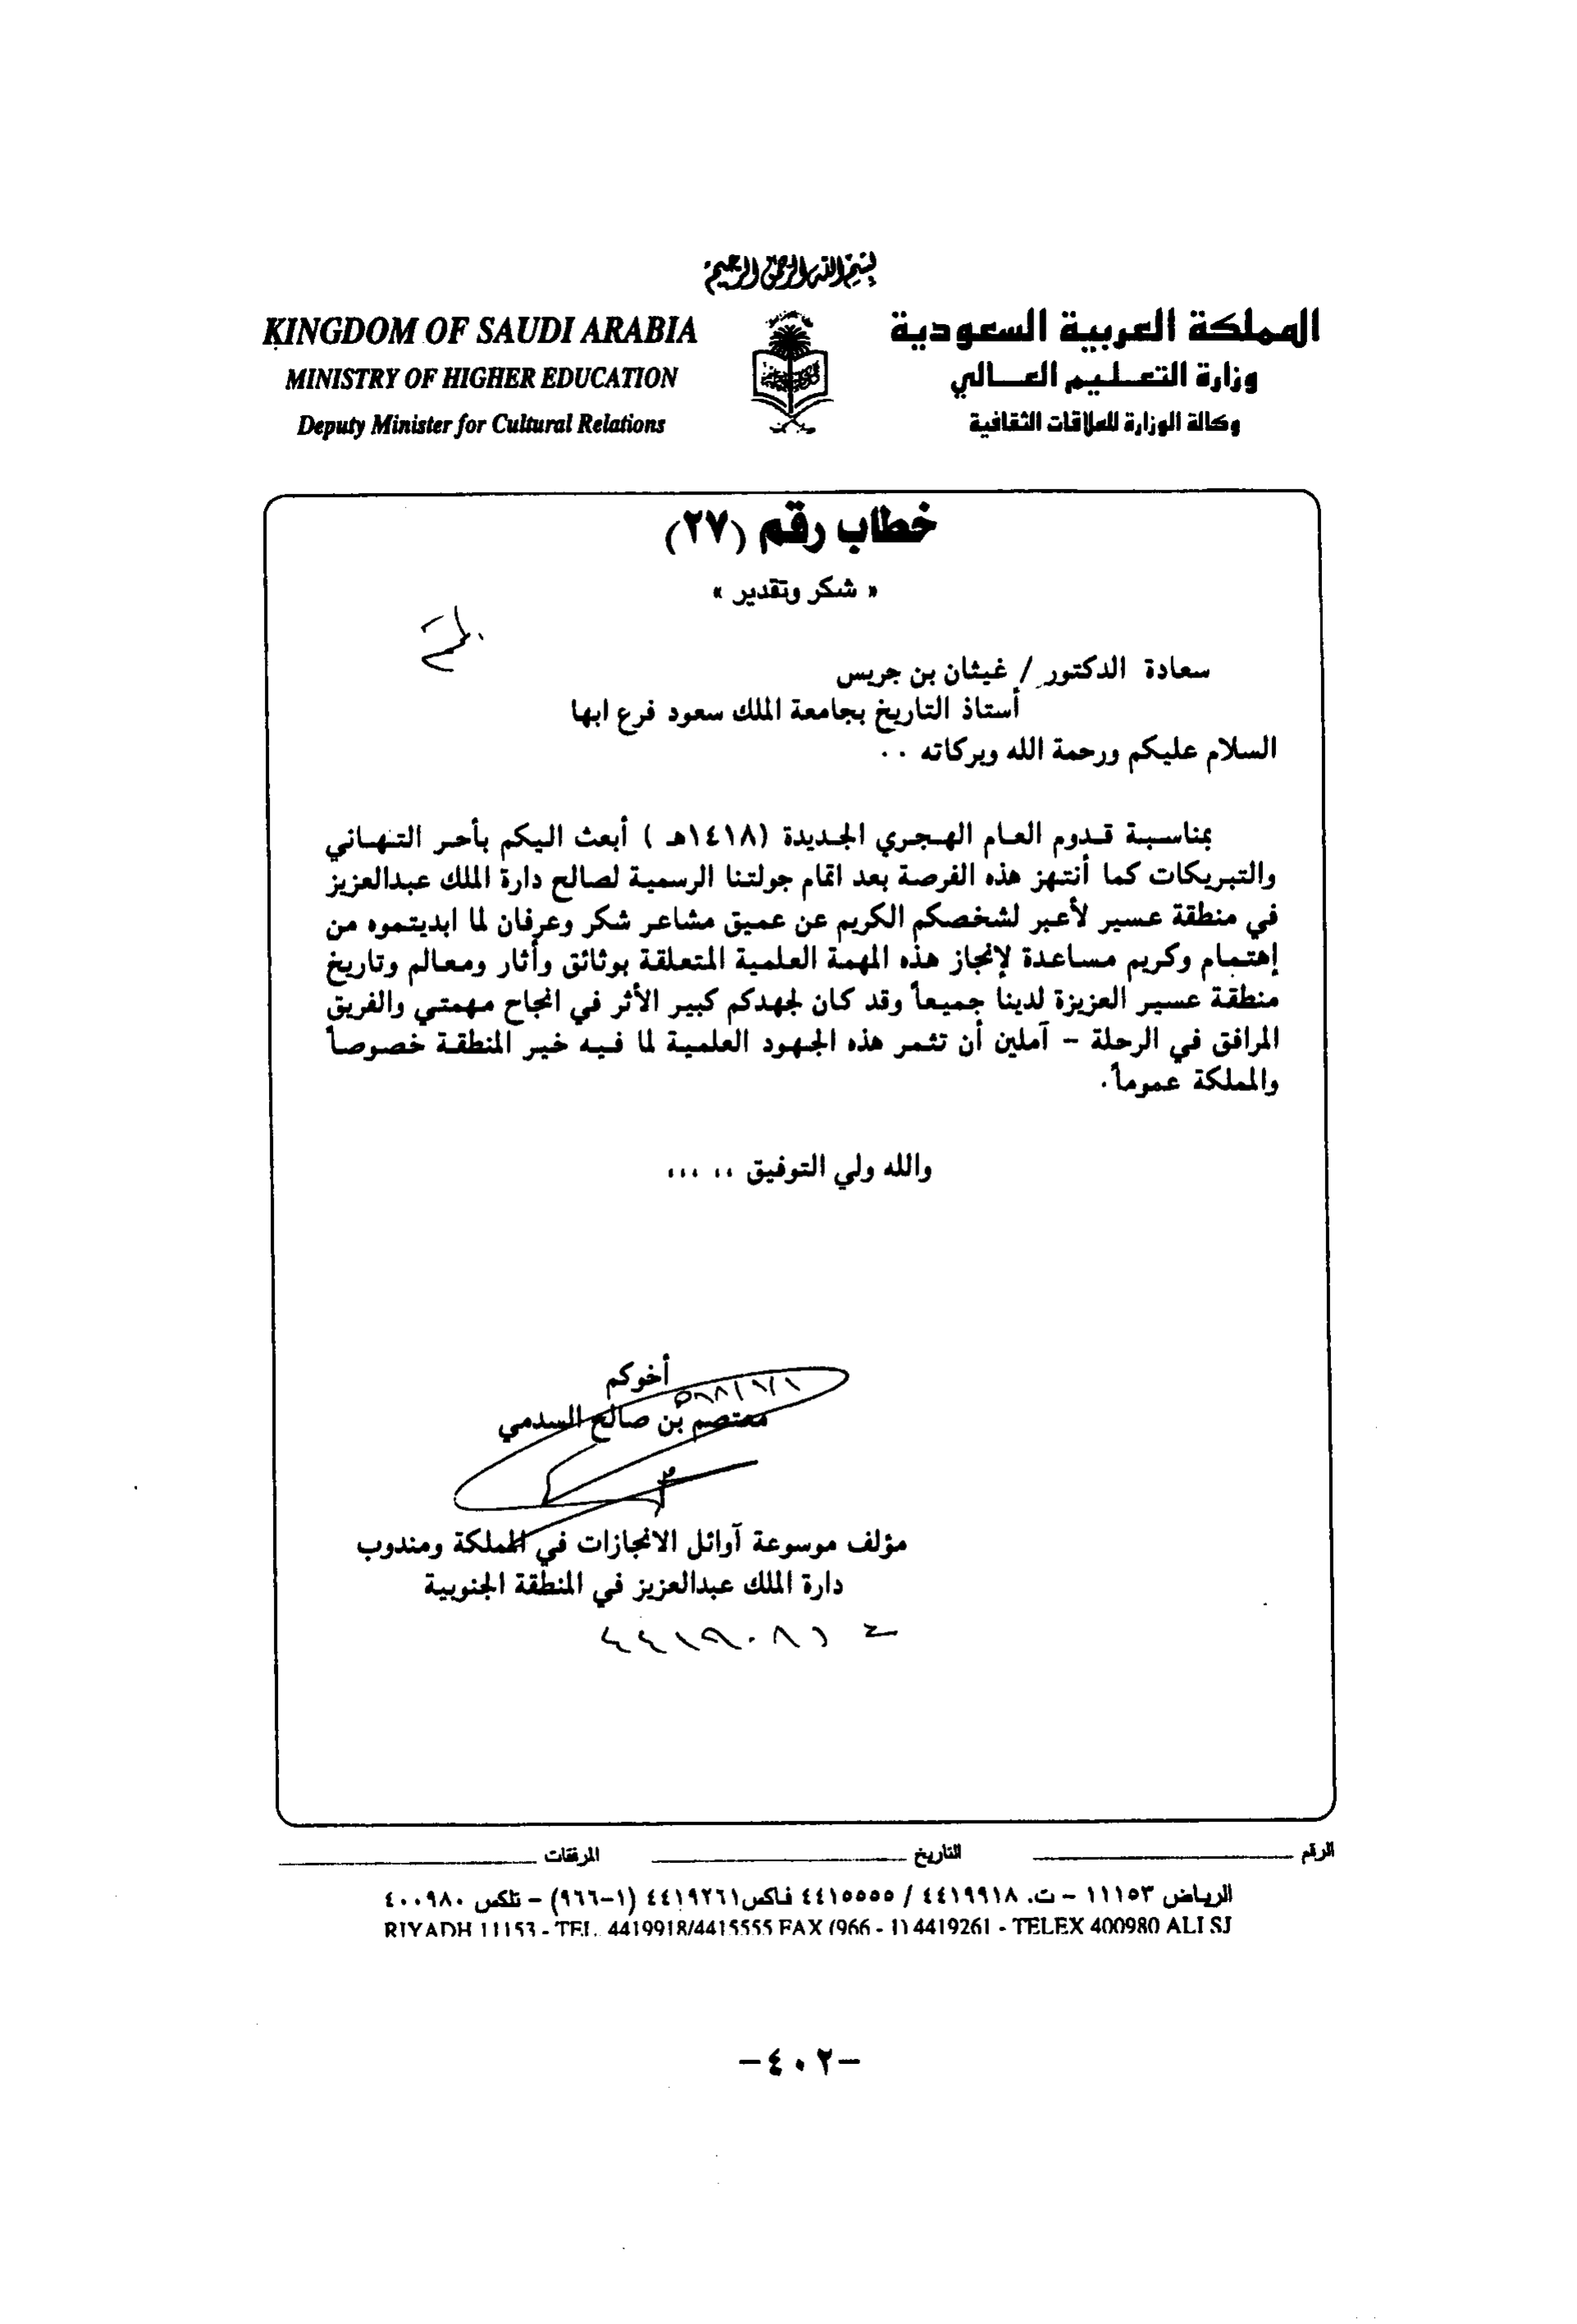 بسم الله الرحمن الرحيم
المملكة العربية السعودية
وزارة التعليم العالي
وكالة الوزارة للعلاقات الثقافية
KINGDOM OF SAUDI ARABIA
MINISTRY OF HIGHER EDUCATION
Deputy Minister for Cultural Relations
خطاب رقم (٢٧)
« شكر وتقدير »
سعادة الدكتور / غيثان بن جريس
أستاذ التاريخ بجامعة الملك سعود فرع ابها
السلام عليكم ورحمة الله وبركاته ..
بمناسبة قدوم العام الهجري الجديدة (١٤١٨هـ ) أبعث اليكم بأحر التهاني
والتبريكات كما أنتهز هذه الفرصة بعد اتمام جولتنا الرسمية لصالح دارة الملك عبدالعزيز
في منطقة عسير لأعبر لشخصكم الكريم عن عميق مشاعر شكر وعرفان لما ابديتموه من
إهتمام وكريم مساعدة لإنجاز هذه المهمة العلمية المتعلقة بوثائق وأثار ومعالم وتاريخ
منطقة عسير العزيزة لدينا جميعاً وقد كان لجهدكم كبير الأثر في انجاح مهمتي والفريق
المرافق في الرحلة - آملين أن تثمر هذه الجهود العلمية لما فيه خير المنطقة خصوصاً
والمملكة عموماً.
والله ولي التوفيق ،، ،،،
أخوكم
معتصم بن صالح السدمي
مؤلف موسوعة آوائل الانجازات في المملكة ومندوب
دارة الملك عبدالعزيز في المنطقة الجنوبية
٤٤١٩٠٨١
الرقم التاريخ المرفقات
الرياض ١١١٥٣ - ت. ٤٤١٩٩١٨ / ٤٤١٥٥٥٥ فاكس ٤٤١٩٢٦١ (١-٩٦٦) - تلكس ٤٠٠٩٨٠
RIYADH 11153 - TEL. 4419918/4415555 FAX (966 - 1) 4419261 - TELEX 400980 ALI SJ
-٤٠٢-